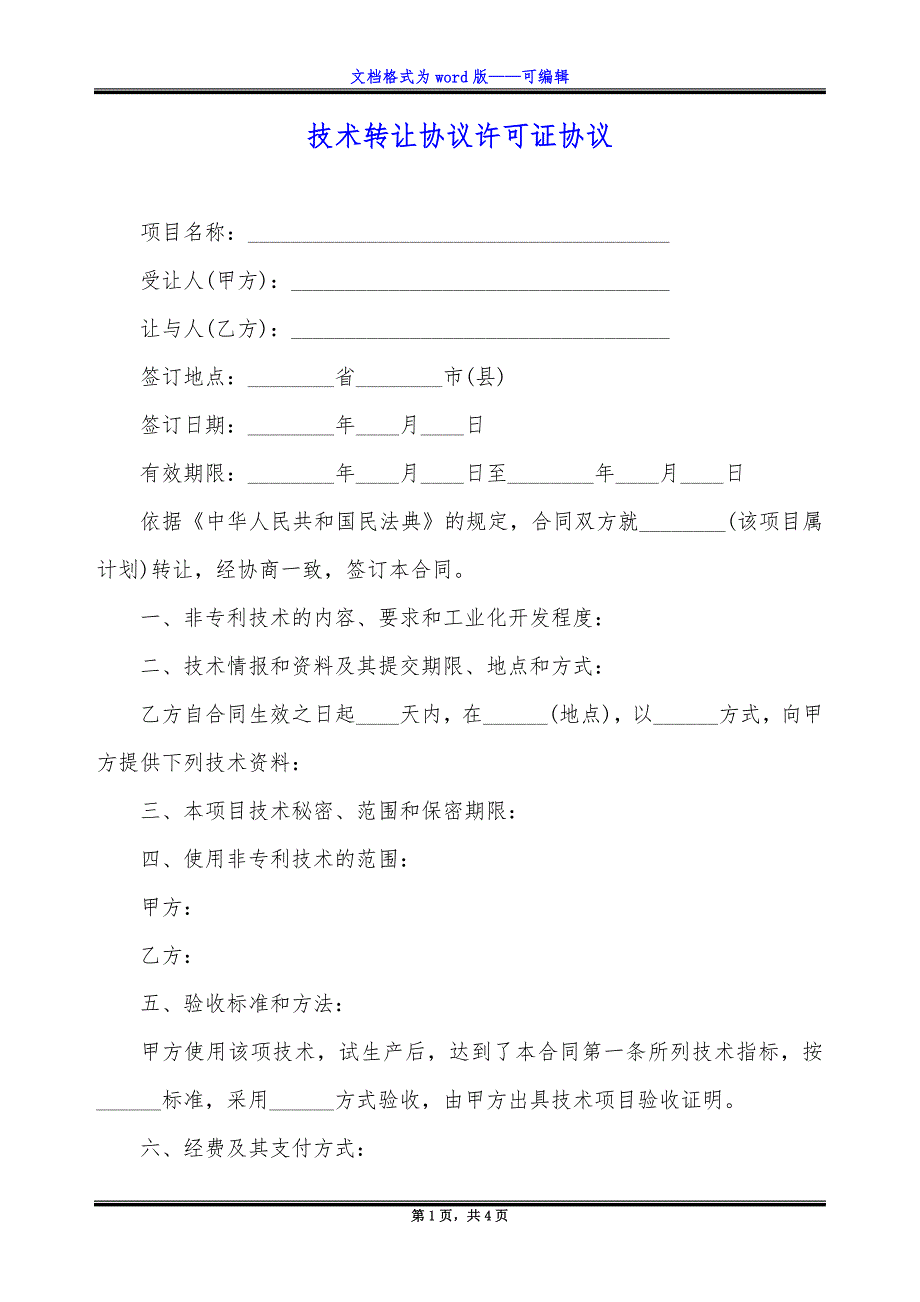 文档格式为 word 版——可编辑
技术转让协议许可证协议
项目名称：_______________________________________
受让人(甲方)：___________________________________
让与人(乙方)：___________________________________
签订地点：________省________市(县)
签订日期：________年____月____日
有效期限：________年____月____日至________年____月____日
依据《中华人民共和国民法典》的规定，合同双方就________(该项目属
计划)转让，经协商一致，签订本合同。
一、非专利技术的内容、要求和工业化开发程度：
二、技术情报和资料及其提交期限、地点和方式：
乙方自合同生效之日起____天内，在______(地点)，以______方式，向甲
方提供下列技术资料：
三、本项目技术秘密、范围和保密期限：
四、使用非专利技术的范围：
甲方：
乙方：
五、验收标准和方法：
甲方使用该项技术，试生产后，达到了本合同第一条所列技术指标，按
______标准，采用______方式验收，由甲方出具技术项目验收证明。
六、经费及其支付方式：
第 1 页，共 4 页